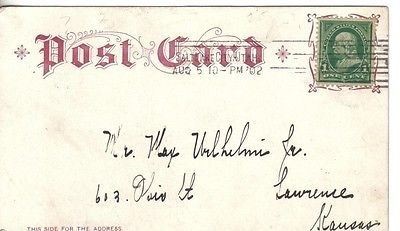 Post Card
SALT LAKE CITY, UTAH
AUG 5 10-PM '02
1 ONE CENT 1
Mr. Max Wilhelmi Jr.
603 Ohio St Lawrence
Kansas
THIS SIDE FOR THE ADDRESS.